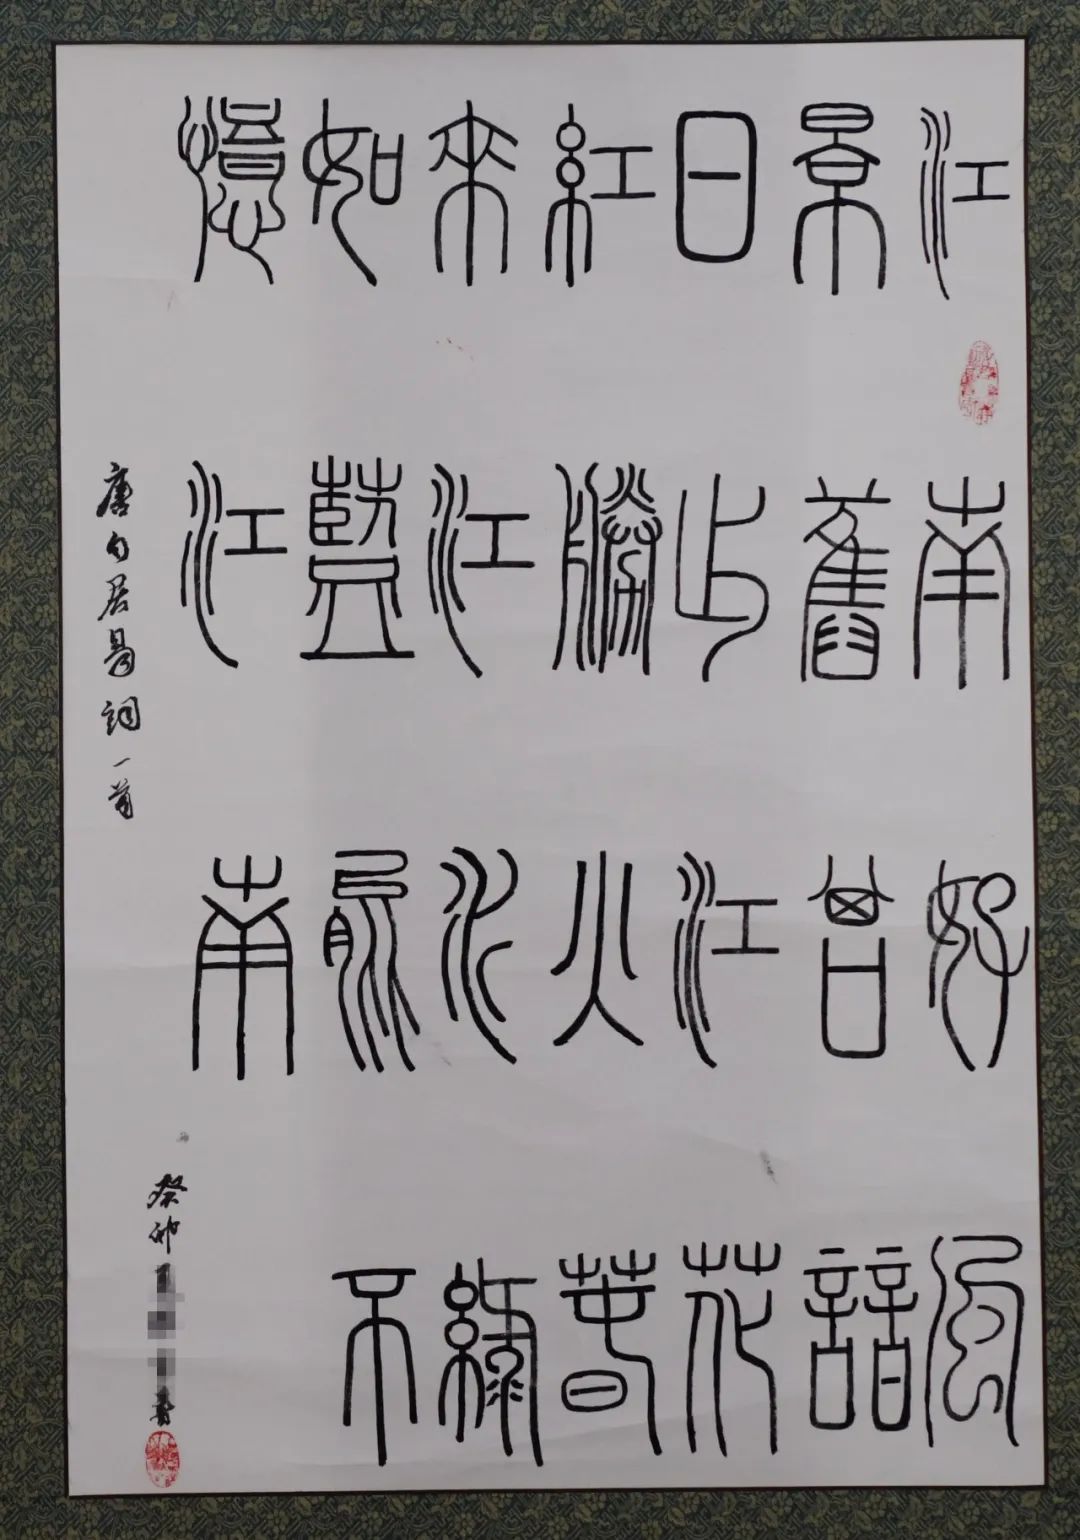 江南好風
景舊曾諳
日出江花
紅勝火春
來江水綠
如藍能不
憶江南
唐白居易詞一首
癸卯